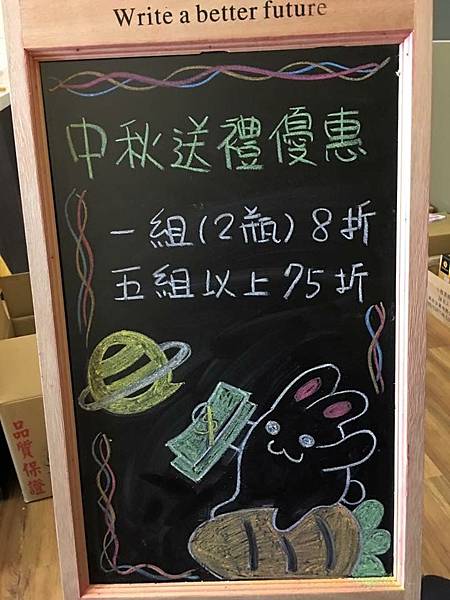 Write a better future
中秋送禮優惠
一組(2瓶)8折
五組以上75折
$
品質保證